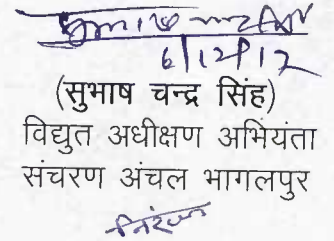 6/12/17
(सुभाष चन्द्र सिंह)
विद्युत अधीक्षण अभियंता
संचरण अंचल भागलपुर
निरंजन